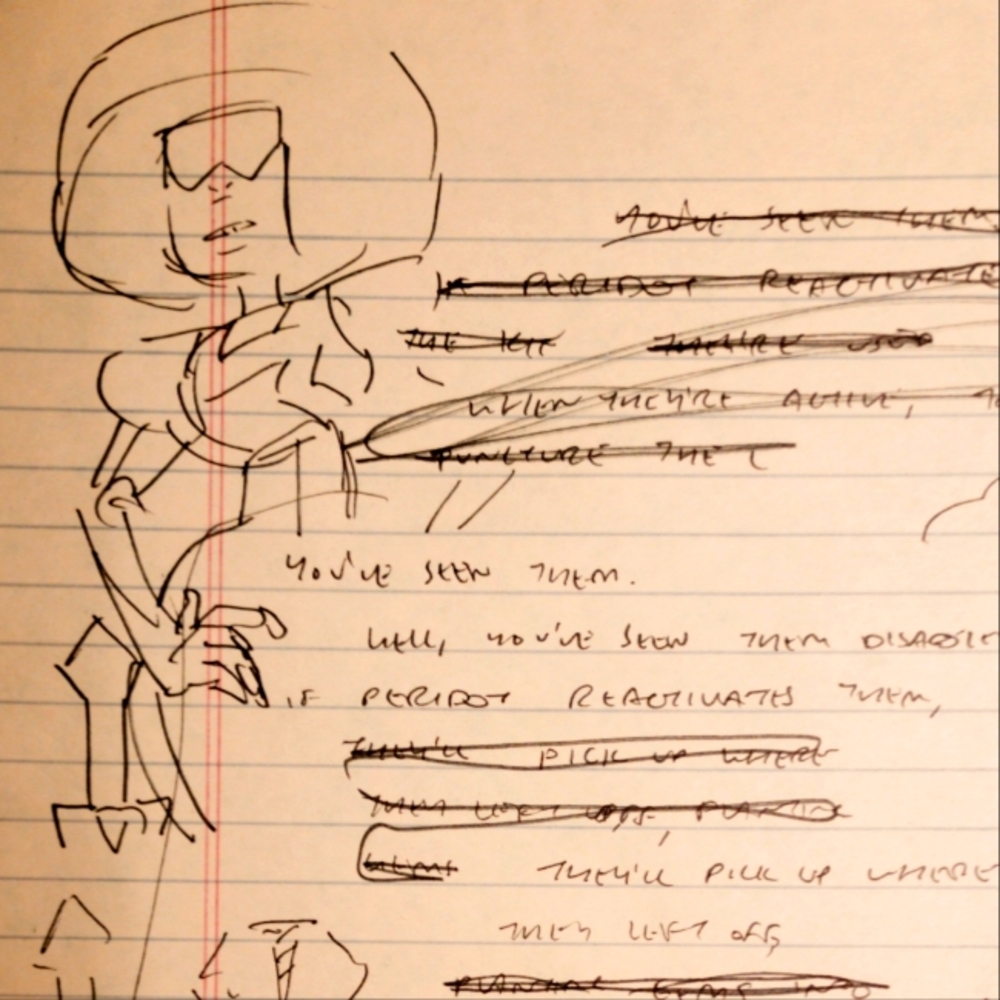 YOU'VE SEEN THEM
IF PERIDOT REACTIVATE
THE KIN THEY'RE USED
WHEN THEY'RE ACTIVE,
PUNCTURE THE
YOU'VE SEEN THEM.
WELL, YOU'VE SEEN THEM DISABLE
IF PERIDOT REACTIVATES THEM,
THEY'LL PICK UP WHERE
THEY LEFT OFF, PLANTING
GEMS
THEY'LL PICK UP WHERE
THEY LEFT OFF,
PLANTING GEMS INTO